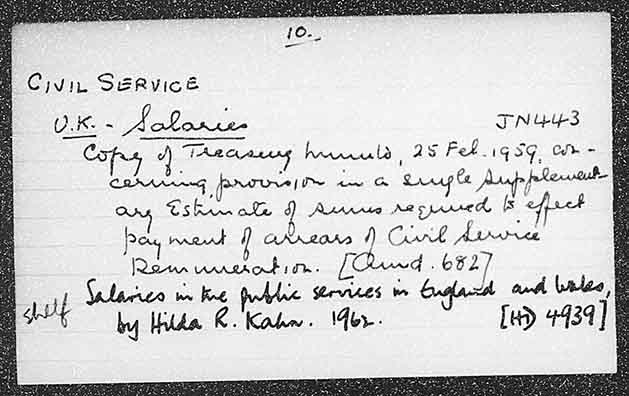 10.
CIVIL SERVICE
U.K. - Salaries JN443
Copy of Treasury Minute, 25 Feb. 1959, con-
cerning provision in a single supplement-
ary Estimate of sums required to effect
payment of arrears of Civil Service
Remuneration. [Cmnd. 682]
shelf Salaries in the public services in England and Wales,
by Hilda R. Kahn. 1962. 4939]